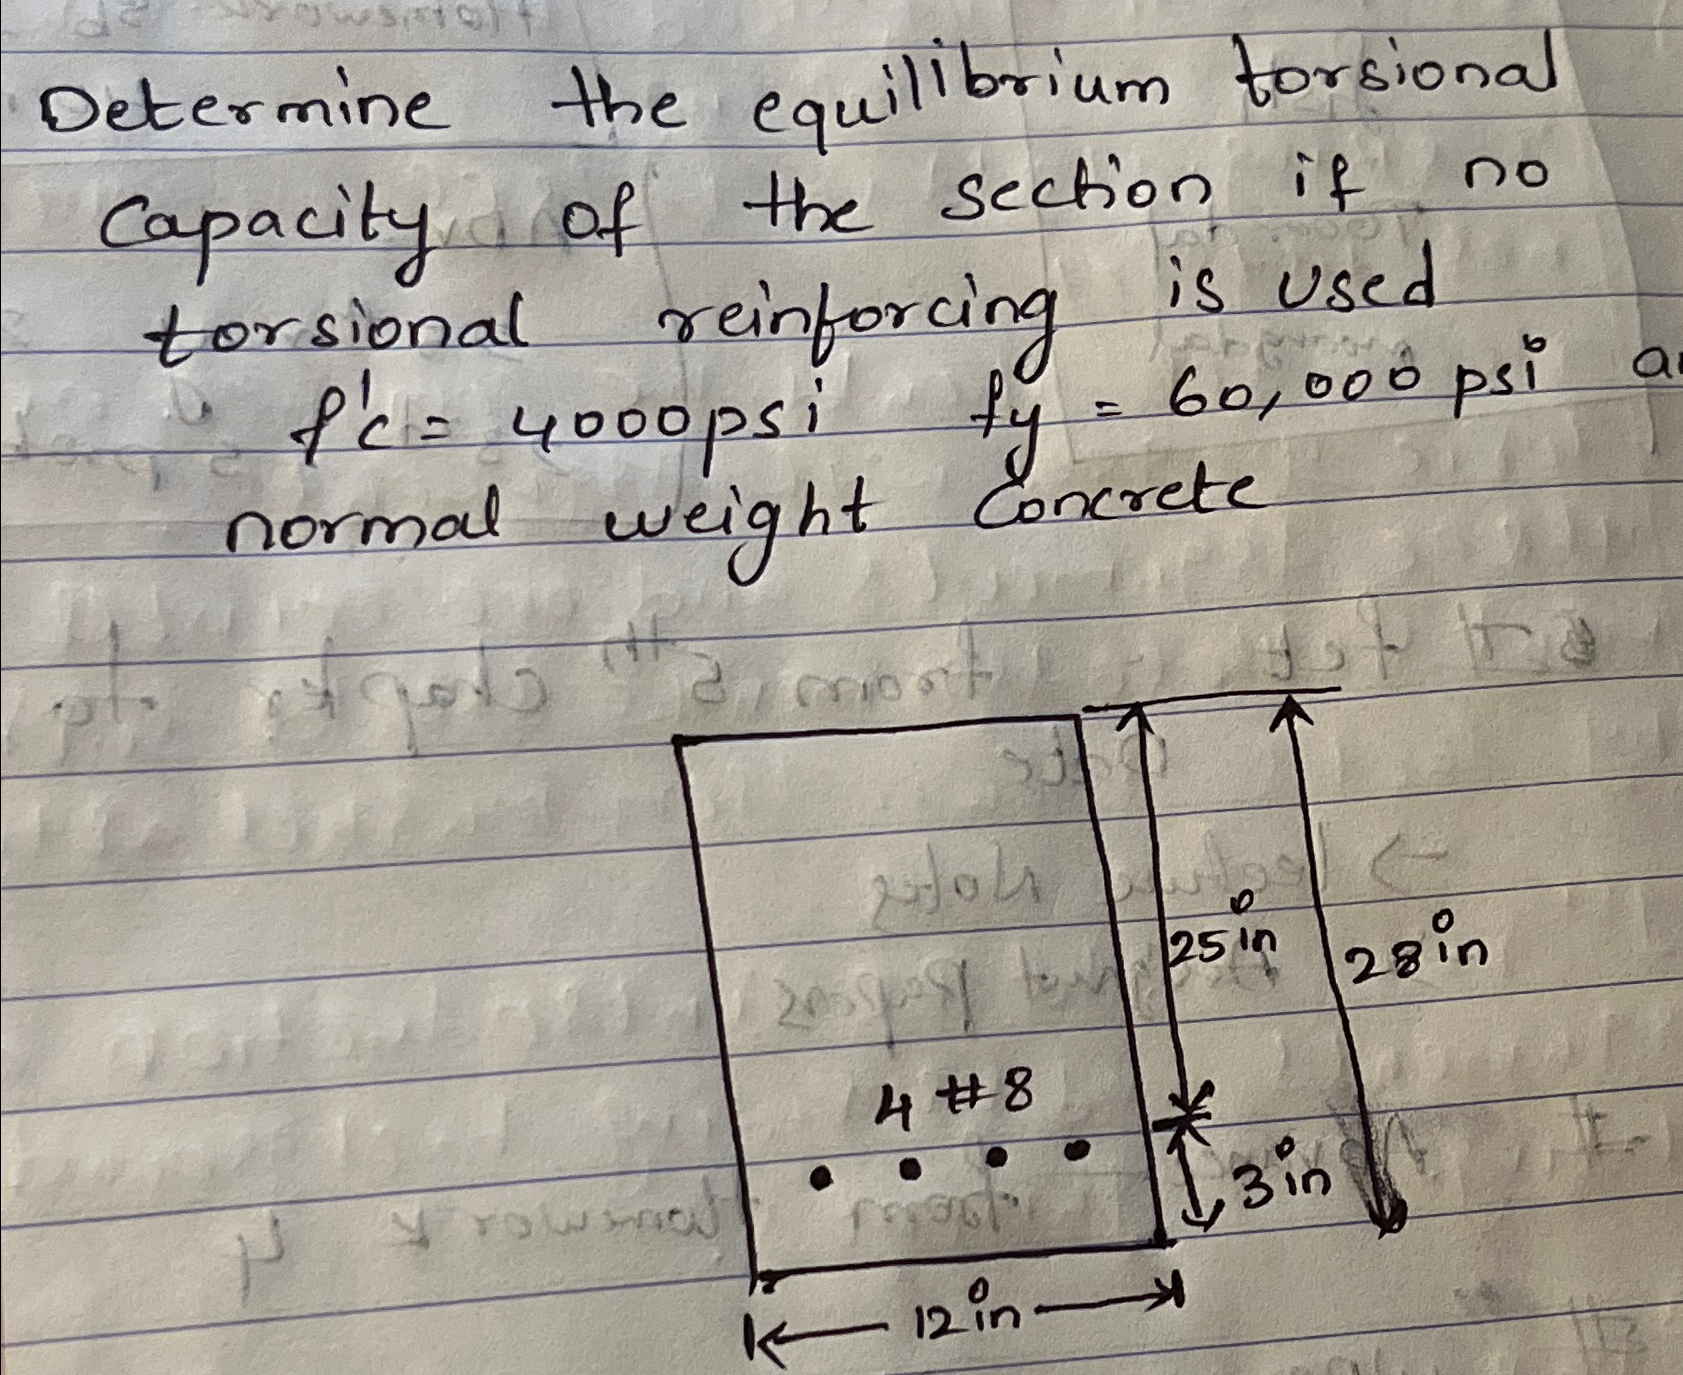 Determine the equilibrium torsional
capacity of the section if no
torsional reinforcing is used
f'c = 4000psi fy = 60,000 psi
normal weight concrete
25in
28in
4 #8
3in
12in